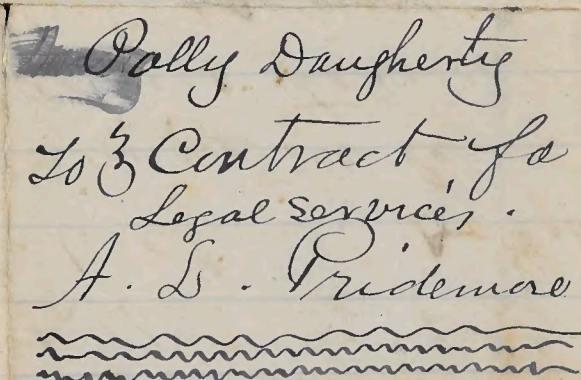 Polly Daugherty
To } Contract fo
Legal services.
A. L. Pridemore